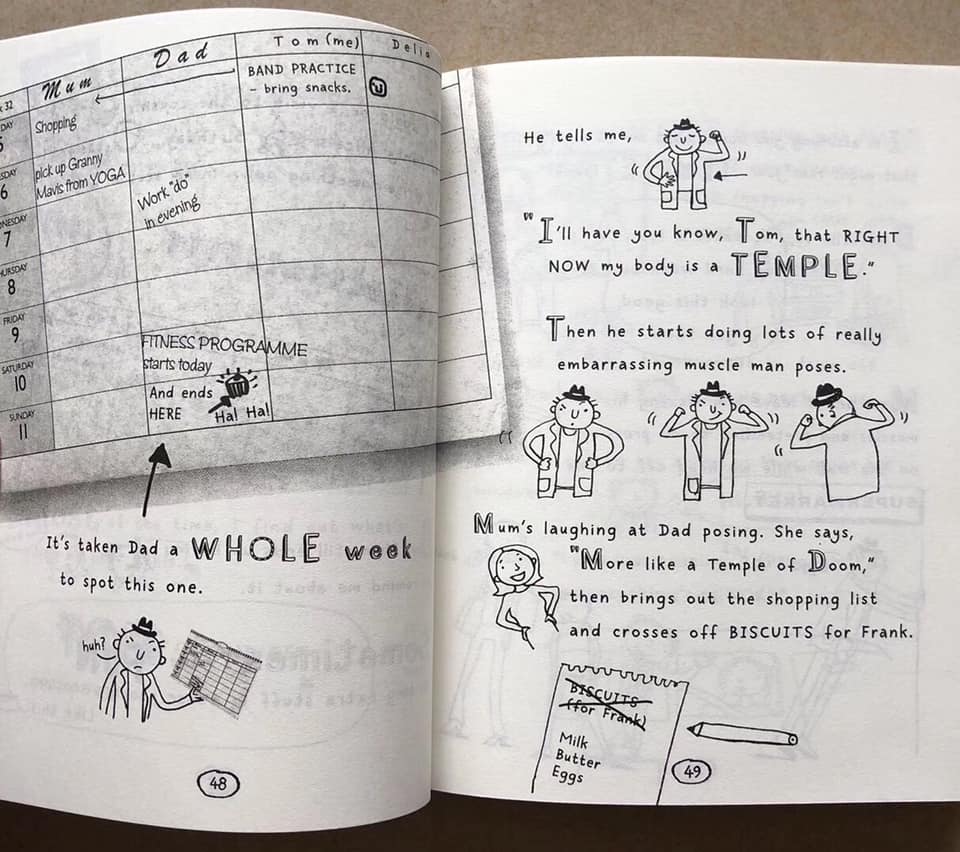 Mum
Dad
Tom (me)
Delia
32
Shopping
BAND PRACTICE
- bring snacks.
DAY
6
pick up Granny
Mavis from YOGA
7
Work "do"
in evening
8
FRIDAY
9
FITNESS PROGRAMME
starts today
SATURDAY
10
And ends
HERE
Ha! Ha!
SUNDAY
11
It's taken Dad a WHOLE week
to spot this one.
huh?
48
He tells me,
"I'll have you know, Tom, that RIGHT
NOW my body is a TEMPLE."
Then he starts doing lots of really
embarrassing muscle man poses.
Mum's laughing at Dad posing. She says,
"More like a Temple of Doom,"
then brings out the shopping list
and crosses off BISCUITS for Frank.
BISCUITS
(for Frank)
Milk
Butter
Eggs
49